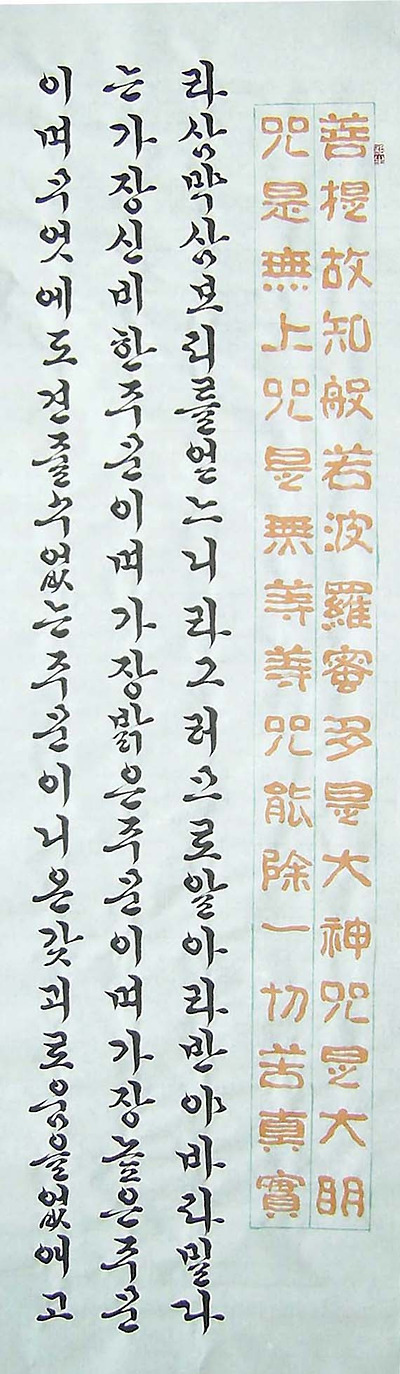 菩提故知般若波羅蜜多是大神咒是大明
咒是無上咒是無等等咒能除一切苦真實
라삼막삼보리를얻느니라그러므로알아라반야바라밀다
는가장신비한주문이며가장밝은주문이며가장높은주문
이며무엇에도견줄수없는주문이니온갖괴로움을없애고